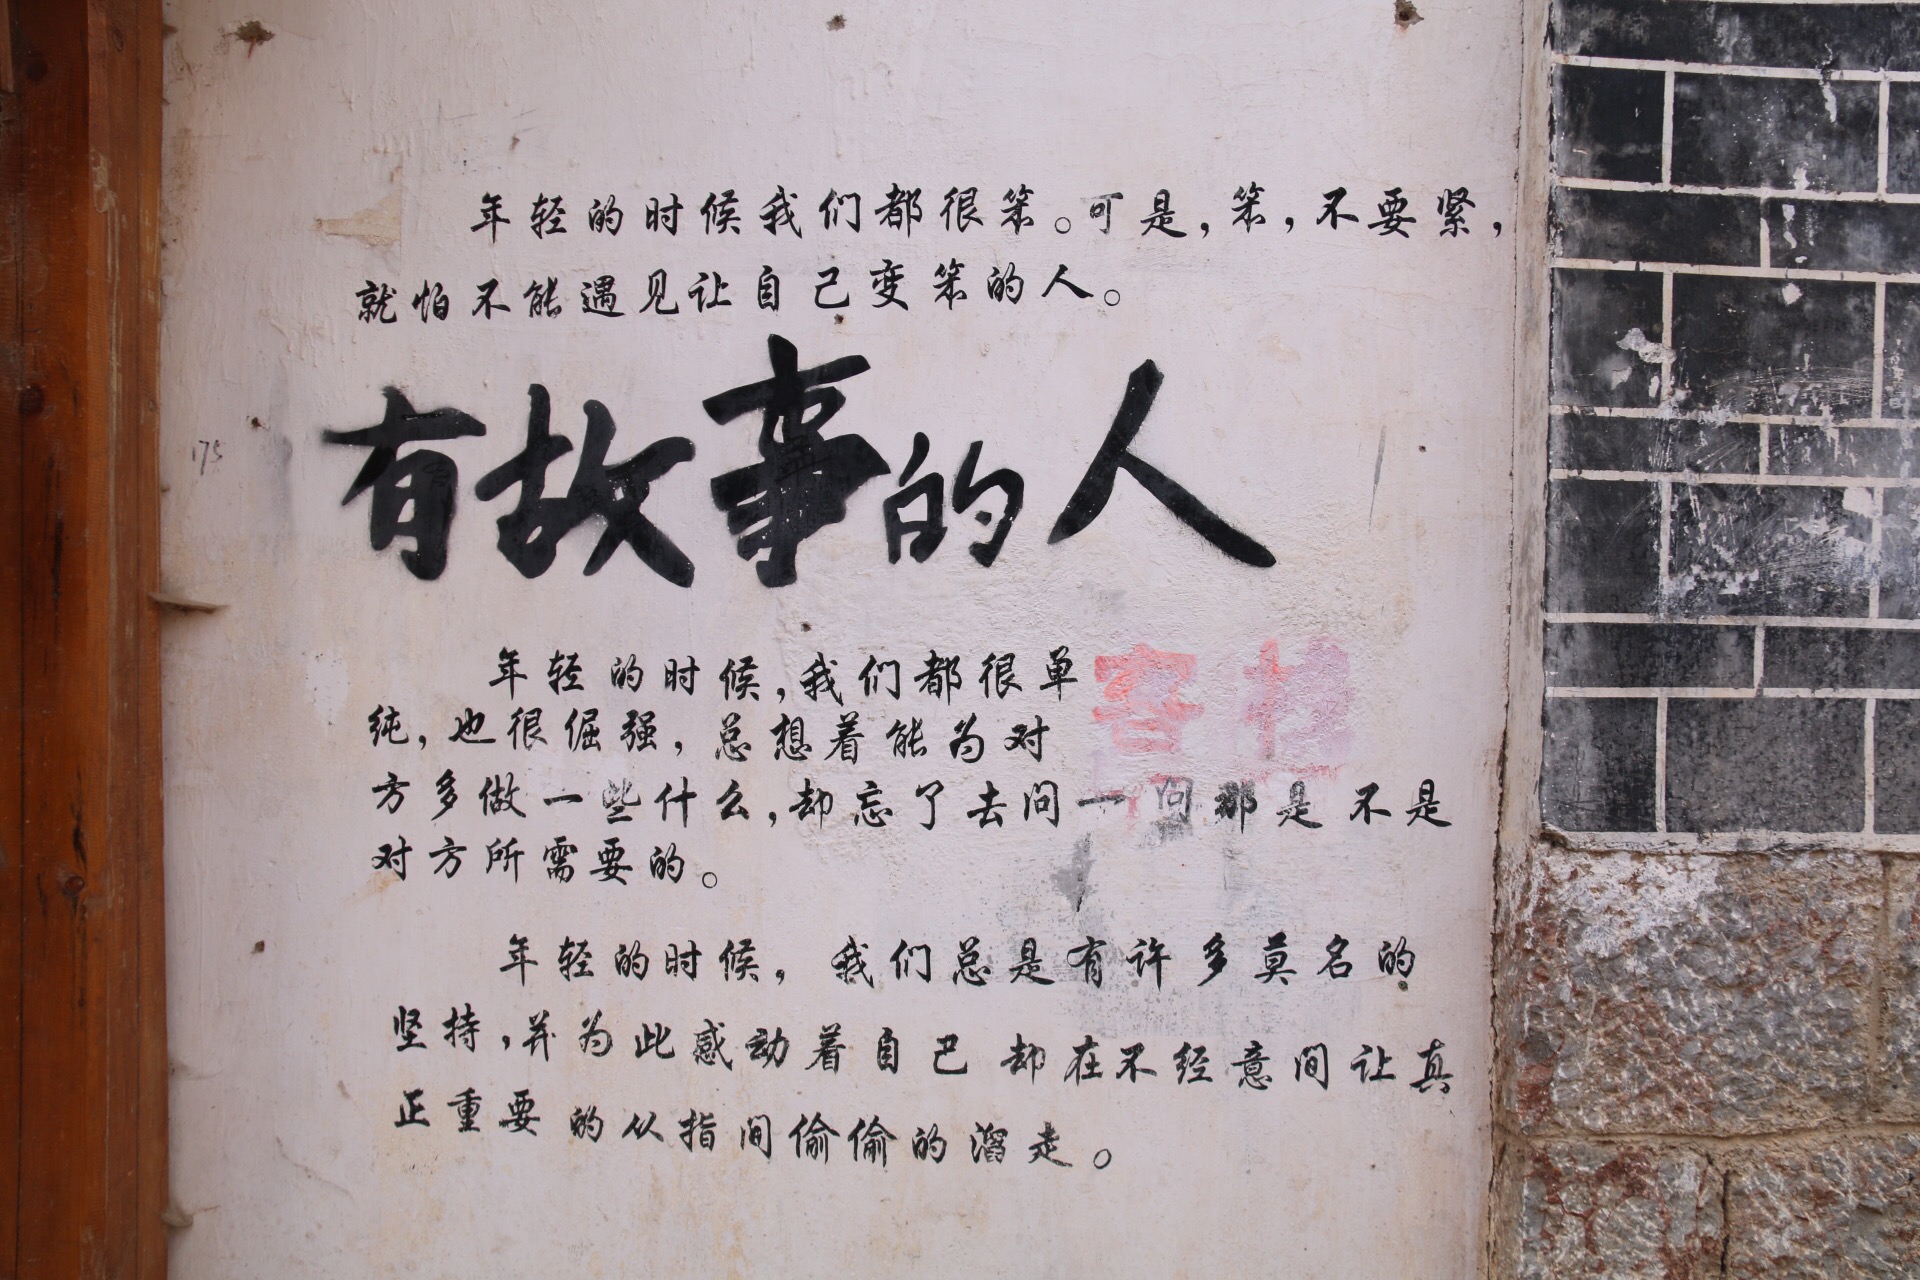 年轻的时候我们都很笨。可是,笨,不要紧,
就怕不能遇见让自己变笨的人。
有故事的人
175
年轻的时候,我们都很单
客栈
纯,也很倔强,总想着能为对
方多做一些什么,却忘了去问一问那是不是
对方所需要的。
年轻的时候,我们总是有许多莫名的
坚持,并为此感动着自己 却在不经意间让真
正重要的从指间偷偷的溜走。